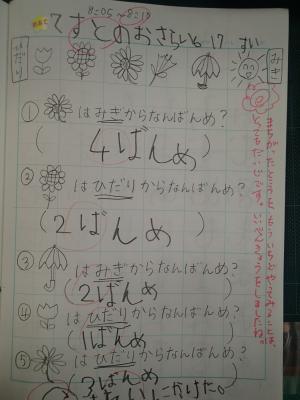 8:05〜8:15
てすとのおさらい 17 すい
ひだり
みぎ
① はみぎからなんばんめ?
(4ばんめ)
② はひだりからなんばんめ?
(2ばんめ)
③ はみぎからなんばんめ?
(2ばんめ)
④ はひだりからなんばんめ?
(1ばんめ)
⑤ はひだりからなんばんめ?
(3ばんめ)
まちがったところを、もういちどやってみることは、
とてもだいじです。いいべんきょうをしましたね。